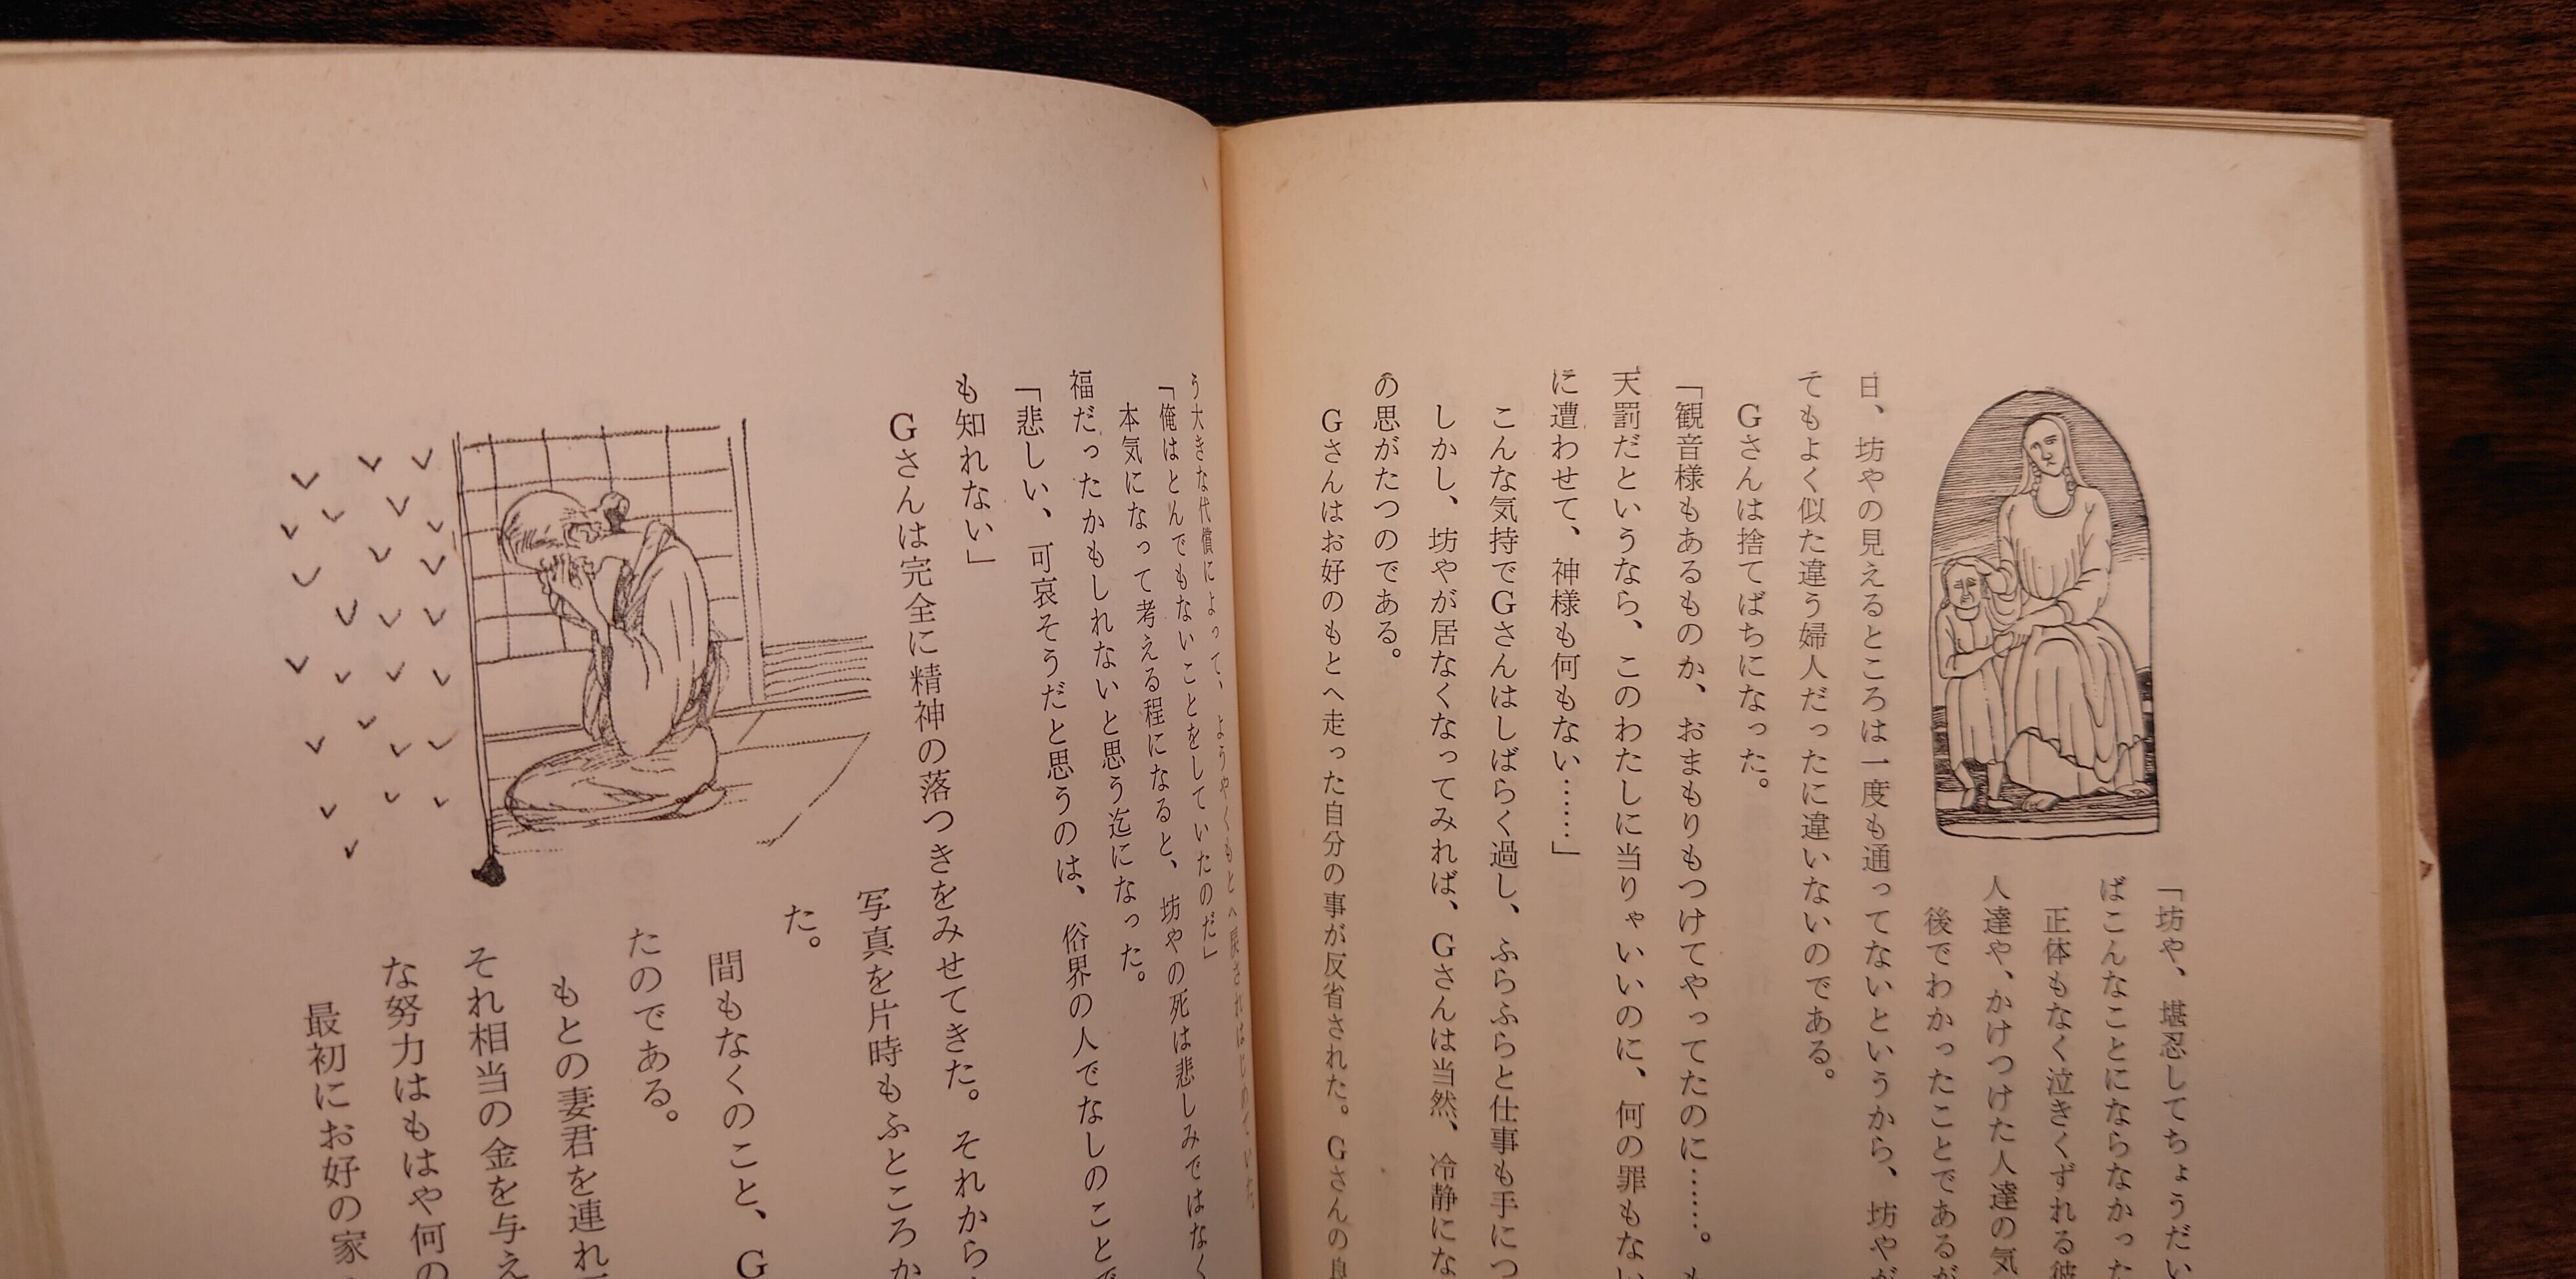 「坊や、堪忍してちょうだい
ばこんなことにならなかった
正体もなく泣きくずれる彼
人達や、かけつけた人達の気
後でわかったことであるが
日、坊やの見えるところは一度も通ってないというから、坊やが
てもよく似た違う婦人だったに違いないのである。
Gさんは捨てばちになった。
「観音様もあるものか、おまもりもつけてやってたのに……。も
天罰だというなら、このわたしに当りゃいいのに、何の罪もない
に遭わせて、神様も何もない……」
こんな気持でGさんはしばらく過し、ふらふらと仕事も手につ
しかし、坊やが居なくなってみれば、Gさんは当然、冷静にな
の思がたつのである。
Gさんはお好のもとへ走った自分の事が反省された。Gさんの良
う大きな代償によって、ようやくもとへ戻されはじめていた。
「俺はとんでもないことをしていたのだ」
本気になって考える程になると、坊やの死は悲しみではなく
福だったかもしれないと思う迄になった。
「悲しい、可哀そうだと思うのは、俗界の人でなしのことで
も知れない」
Gさんは完全に精神の落つきをみせてきた。それから
写真を片時もふところか
た。
間もなくのこと、G
たのである。
もとの妻君を連れ
それ相当の金を与え
な努力はもはや何の
最初にお好の家